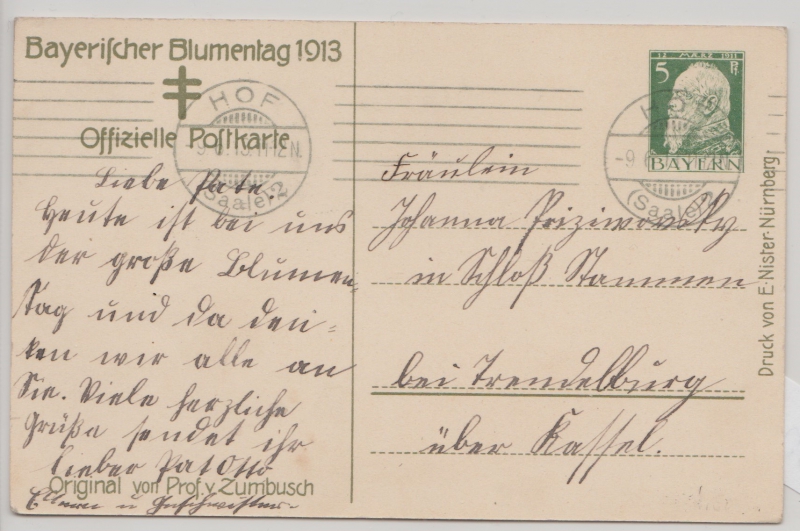 Bayerischer Blumentag 1913
Offizielle Postkarte
HOF
(Saale) 2
Liebe Pate.
Heute ist bei uns
der große Blumen-
tag und da den-
ken wir alle an
Sie. Viele herzliche
Grüße sendet ihr
lieber Pat Otto
Original von Prof. v. Zumbusch
Eltern u Geschwister-
12 MÆRZ 1911
5 Pf
BAYERN
HOF
-9
(Saale) 2
Fräulein
Johanna Priziwovsky
in Schloß Stammen
bei Trendelburg
über Kassel.
Druck von E. Nister-Nürnberg